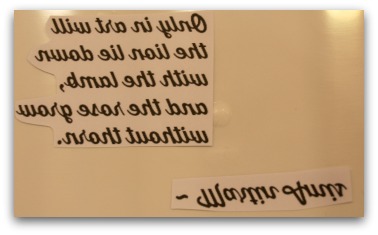 Only in art will
the lion lie down
with the lamb,
and the rose grow
without thorn.
~ Martin Amis